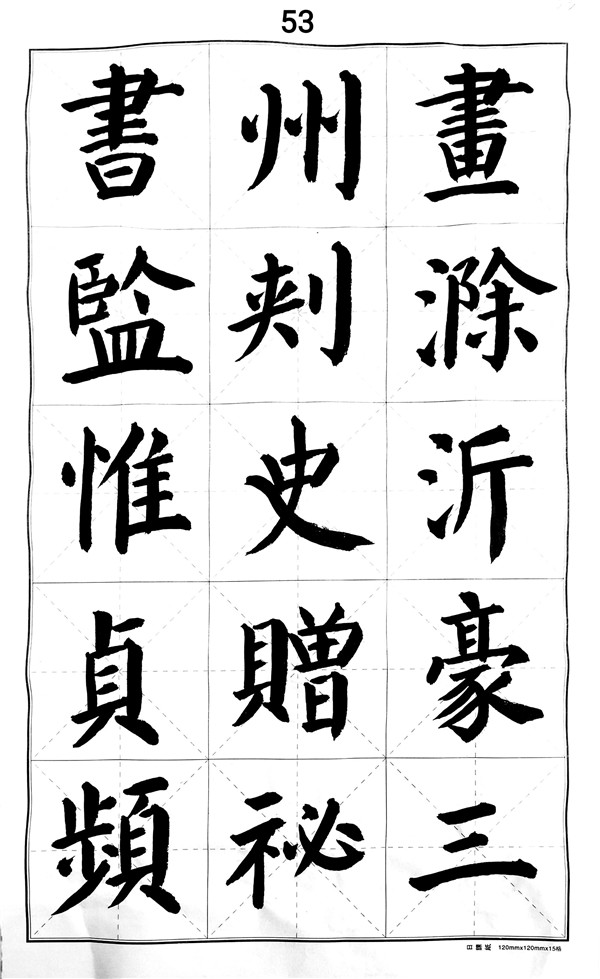 53
畫滁沂豪三
州刾史贈祕
書監惟貞頻
120mmx120mmx15格